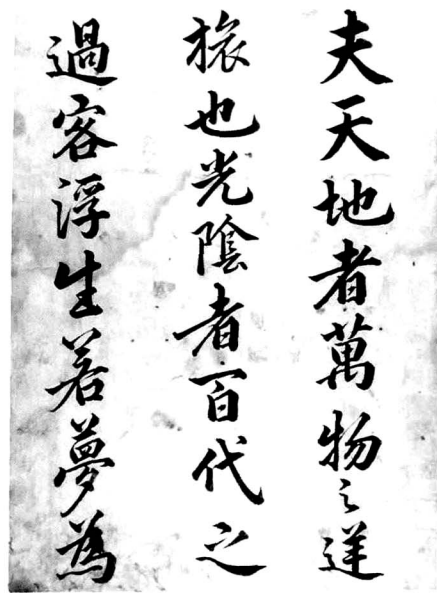 夫天地者萬物之逆
旅也光陰者百代之
過客浮生若夢為